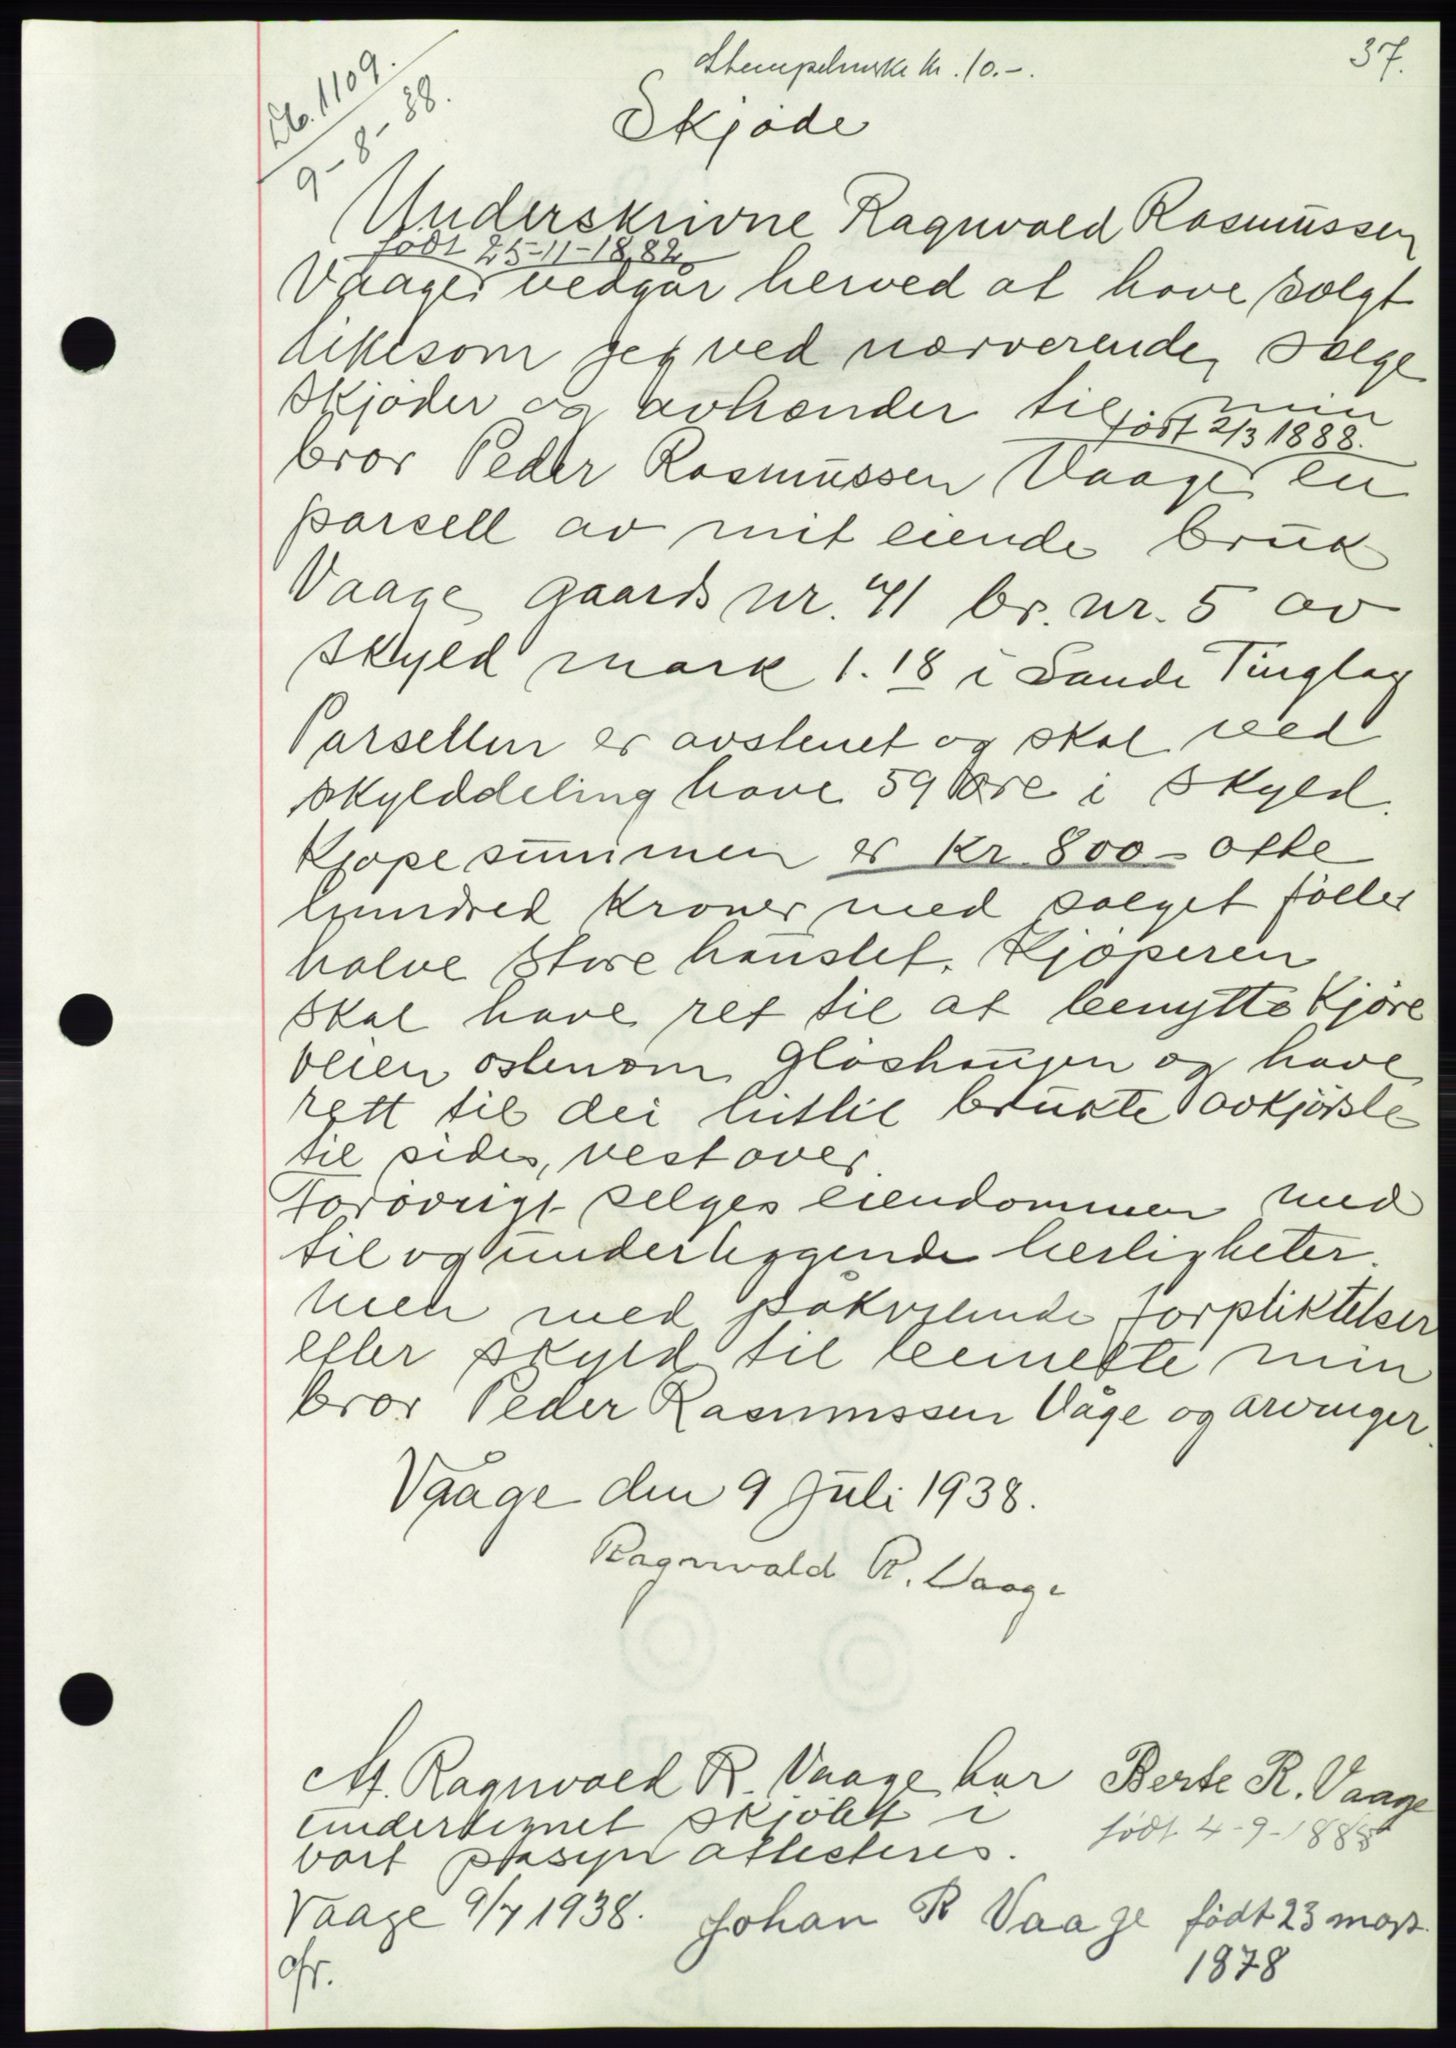 37.
Stempelmerke kr. 10.-.
Db. 1109.
9-8-38.
Skjøde
Underskrivne Ragnvald Rasmussen
født 25-11-1882
Vaage vedgår herved at have solgt
likesom jeg ved nærverende sælge
skjøder og avhænder til min
født 2/3 1888.
bror Peder Rasmussen Vaage en
parsell av mit eiende bruk
Vaage gaards nr. 41 br. nr. 5 av
skyld mark 1.18 i Sande Tinglag
Parsellen er avstenet og skal ved
skylddeling have 59 øre i skyld.
Kjøpesummen er kr. 800 - otte
hundred kroner med salget føller
halve store hauslet. Kjøperen
skal have ret til at benytte kjøre
veien østenom Gløshaugen og have
rett til dei hittil brukte avkjørsle
til sides, vestover.
Forøvrigt selges eiendommen med
til og underliggende herligheter.
men med påkvilende forpliktelser
efter skyld til bemelte min
bror Peder Rasmussen Våge og arvinger.
Vaage den 9 Juli 1938.
Ragnvald R. Vaage
At Ragnvald R. Vaage har
undertegnet skjøtet i
vort påsyn attesteres.
Vaage 9/7 1938.
Berte R. Vaage
født 4-9-1888
Johan R Vaage født 23 mars.
1878
gfr.